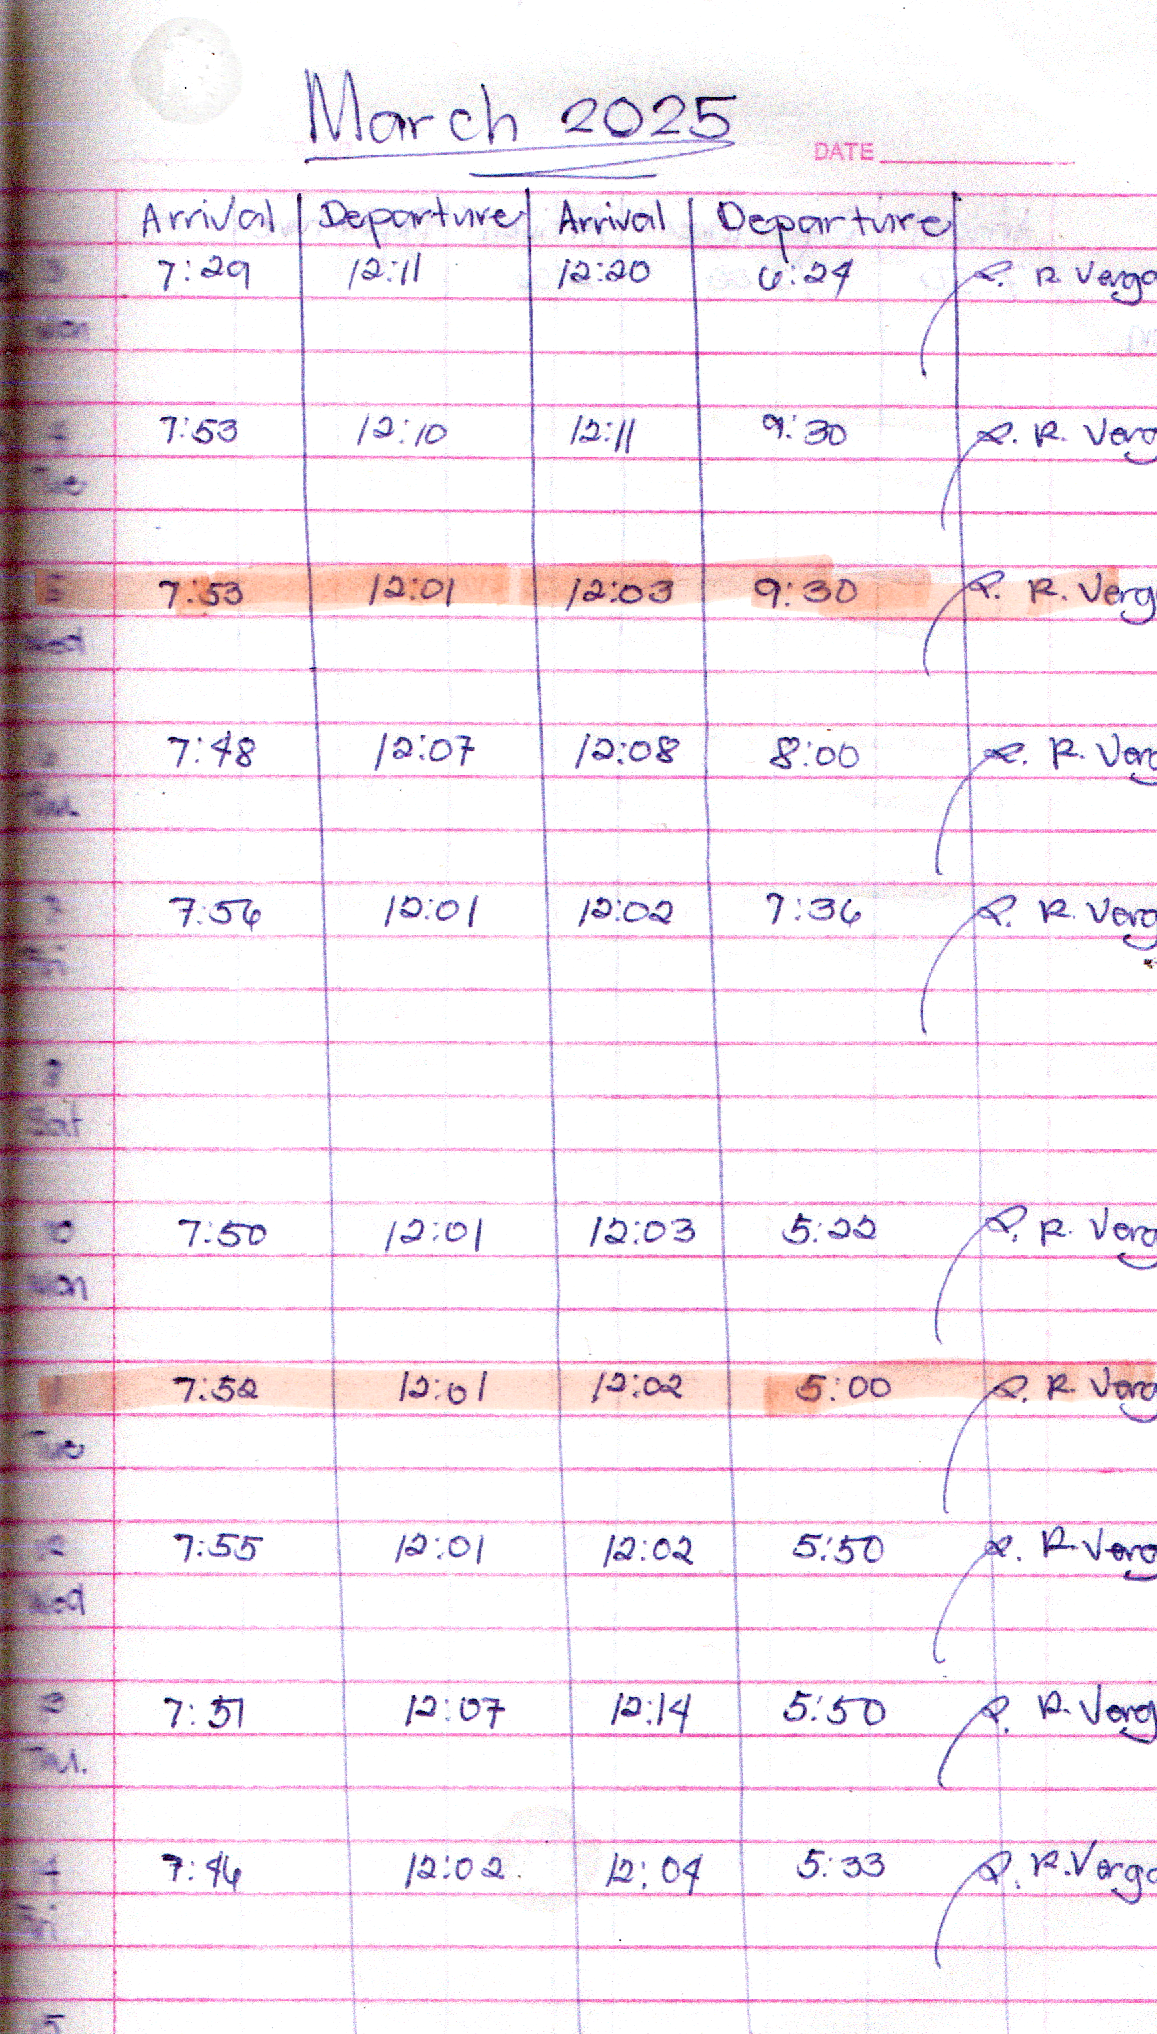 March 2025
DATE
Arrival Departure Arrival Departure
3 7:29 12:11 12:20 6:24 R. Verga
Mon
4 7:53 12:10 12:11 9:30 R. Verg
Tue
5 7:53 12:01 12:03 9:30 R. Verg
Wed
7:48 12:07 12:08 8:00 R. Verg
Thu.
7 7:56 12:01 12:02 7:36 R. Verg
Fri
8
Sat
0 7:50 12:01 12:03 5:22 R. Verg
Mon
1 7:52 12:01 12:02 5:00 R. Verg
Tue
2 7:55 12:01 12:02 5:50 R. Verg
Wed
3 7:51 12:07 12:14 5:50 R. Verg
Thu.
4 7:46 12:02 12:04 5:33 R. Verga
Fri
5